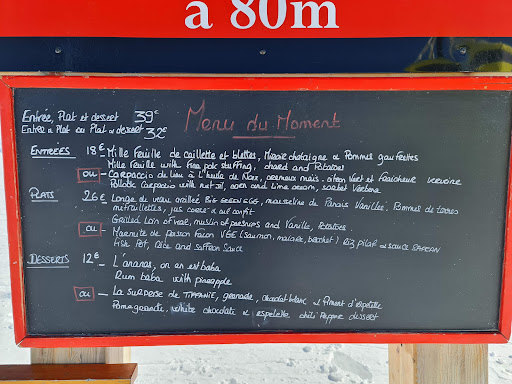 à 80m
Entrée, Plat et dessert 39€
Entrée & Plat ou Plat & dessert 32€
Menu du Moment
ENTRÉES 18€ - Mille feuille de caillette et blettes, Miroir châtaigne & Pommes gaufrettes
Mille feuille with fine pork stuffing, chard and Potatoes
ou - Carpaccio de lieu à l'huile de Noix, citron vert et fraicheur verveine
Pollock Carpaccio with nut oil, and lime cream, sorbet Verbena
PLATS 26€ Longe de veau grillée BIG GREEN EGG, mousseline de Panais Vanillée, Pommes de terres
mitraillettes, jus corsé à l'ail confit
Grilled Loin of veal, muslin of parsnips and Vanilla, Potatoes
ou - Marmite de Poisson façon VGE (saumon, brochet) Riz pilaf & sauce SAFRAN
Fish Pot, Rice and Saffron Sauce
DESSERTS 12€ - L'ananas, on en est baba
Rum baba with pineapple
ou - La surprise de TIFFANIE, grenade, chocolat blanc & Piment d'espelette
Pomegranate, white chocolate & espelette chili Pepper dessert